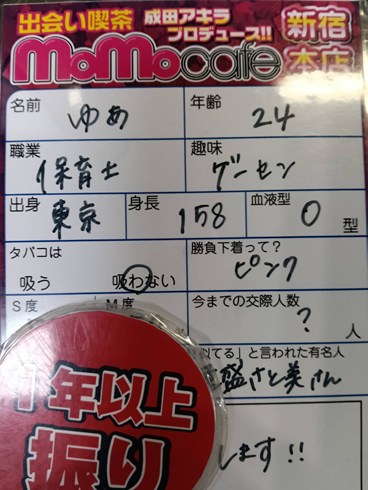 出会い喫茶 成田アキラ
プロデュース!!
新宿
本店
MoMocafe
名前 ゆあ 年齢 24
職業 保育士 趣味 ゲーセン
出身 東京 身長 158 血液型 O 型
タバコは 吸う 吸わない 勝負下着って? ピンク
S度 M度 今までの交際人数 ? 人
似てる」と言われた有名人
盛さと美さん
年以上
振り
します!!